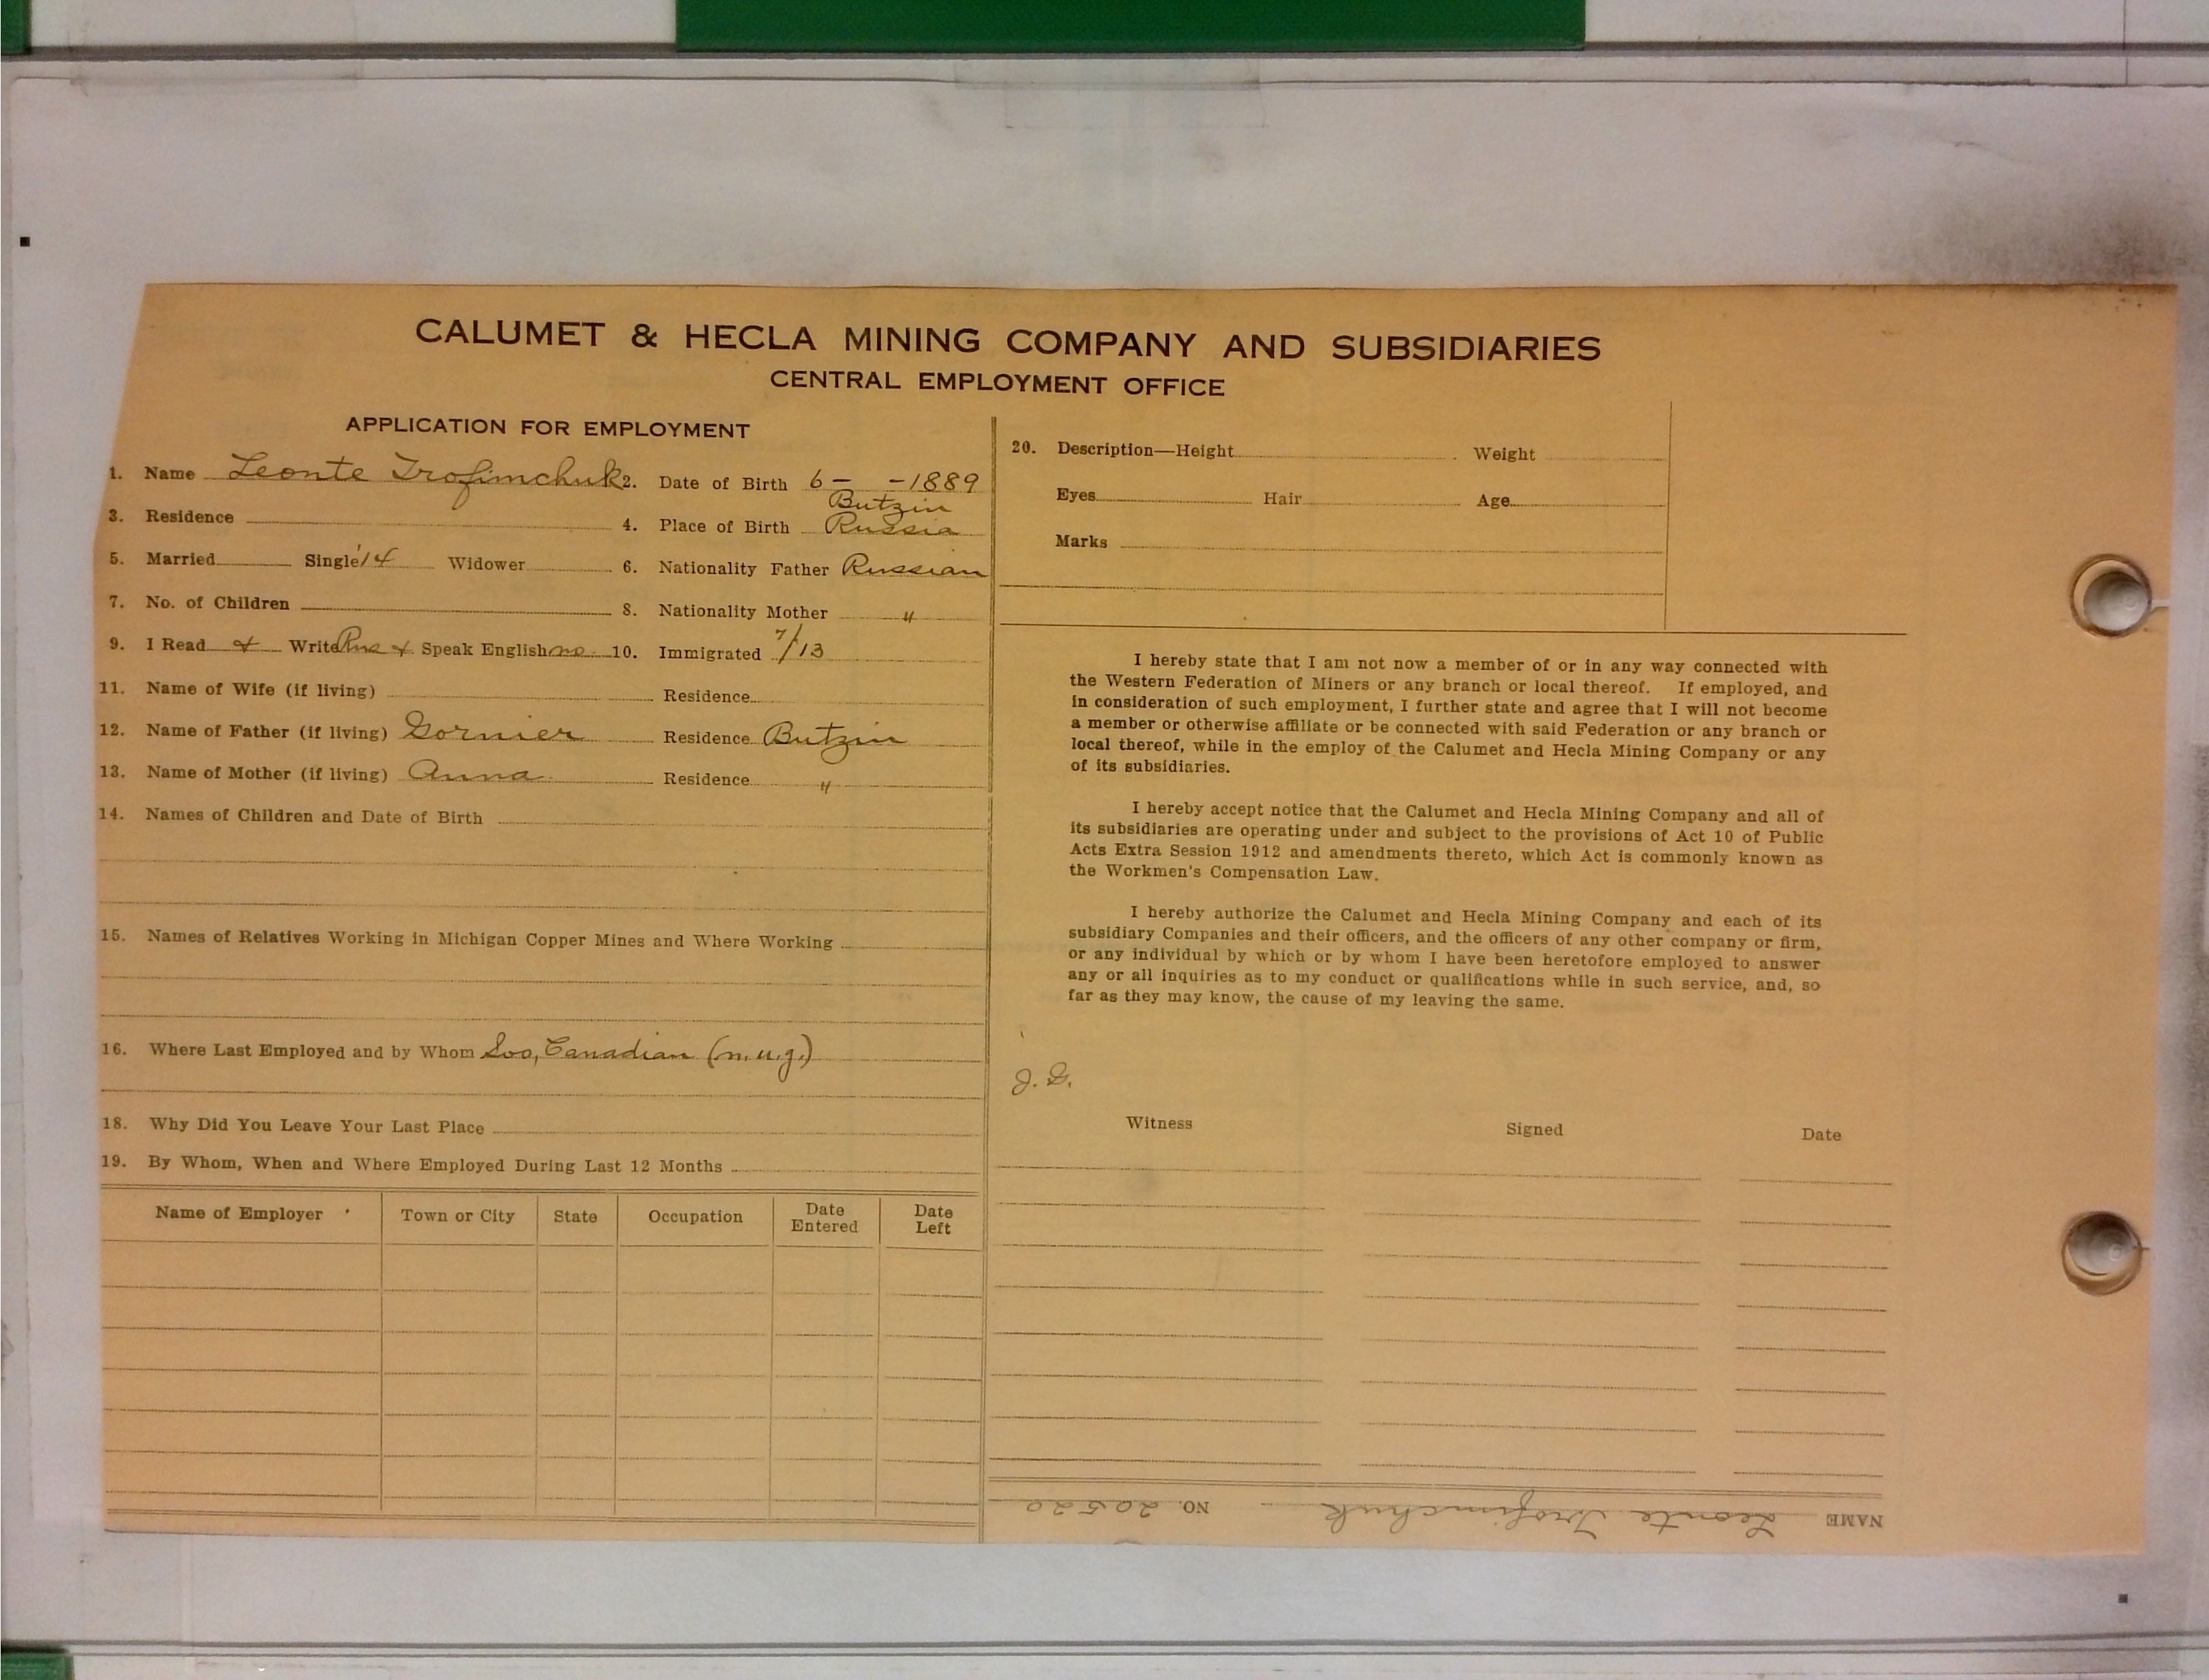 CALUMET & HECLA MINING COMPANY AND SUBSIDIARIES
CENTRAL EMPLOYMENT OFFICE
APPLICATION FOR EMPLOYMENT
1. Name Leonte Trofimchuk 2. Date of Birth 6- -1889
3. Residence 4. Place of Birth Butzin Russia
5. Married Single 14 Widower 6. Nationality Father Russian
7. No. of Children 8. Nationality Mother "
9. I Read & Write Rus & Speak English no 10. Immigrated 7/13
11. Name of Wife (if living) Residence
12. Name of Father (if living) Gornier Residence Butzin
13. Name of Mother (if living) Anna Residence "
14. Names of Children and Date of Birth
15. Names of Relatives Working in Michigan Copper Mines and Where Working
16. Where Last Employed and by Whom Soo, Canadian (n.u.g.)
18. Why Did You Leave Your Last Place
19. By Whom, When and Where Employed During Last 12 Months
Name of Employer Town or City State Occupation Date Entered Date Left
20. Description—Height Weight
Eyes Hair Age
Marks
I hereby state that I am not now a member of or in any way connected with
the Western Federation of Miners or any branch or local thereof. If employed, and
in consideration of such employment, I further state and agree that I will not become
a member or otherwise affiliate or be connected with said Federation or any branch or
local thereof, while in the employ of the Calumet and Hecla Mining Company or any
of its subsidiaries.
I hereby accept notice that the Calumet and Hecla Mining Company and all of
its subsidiaries are operating under and subject to the provisions of Act 10 of Public
Acts Extra Session 1912 and amendments thereto, which Act is commonly known as
the Workmen's Compensation Law.
I hereby authorize the Calumet and Hecla Mining Company and each of its
subsidiary Companies and their officers, and the officers of any other company or firm,
or any individual by which or by whom I have been heretofore employed to answer
any or all inquiries as to my conduct or qualifications while in such service, and, so
far as they may know, the cause of my leaving the same.
J. G.
Witness Signed Date
NAME Leonte Trofimchuk NO. 20520